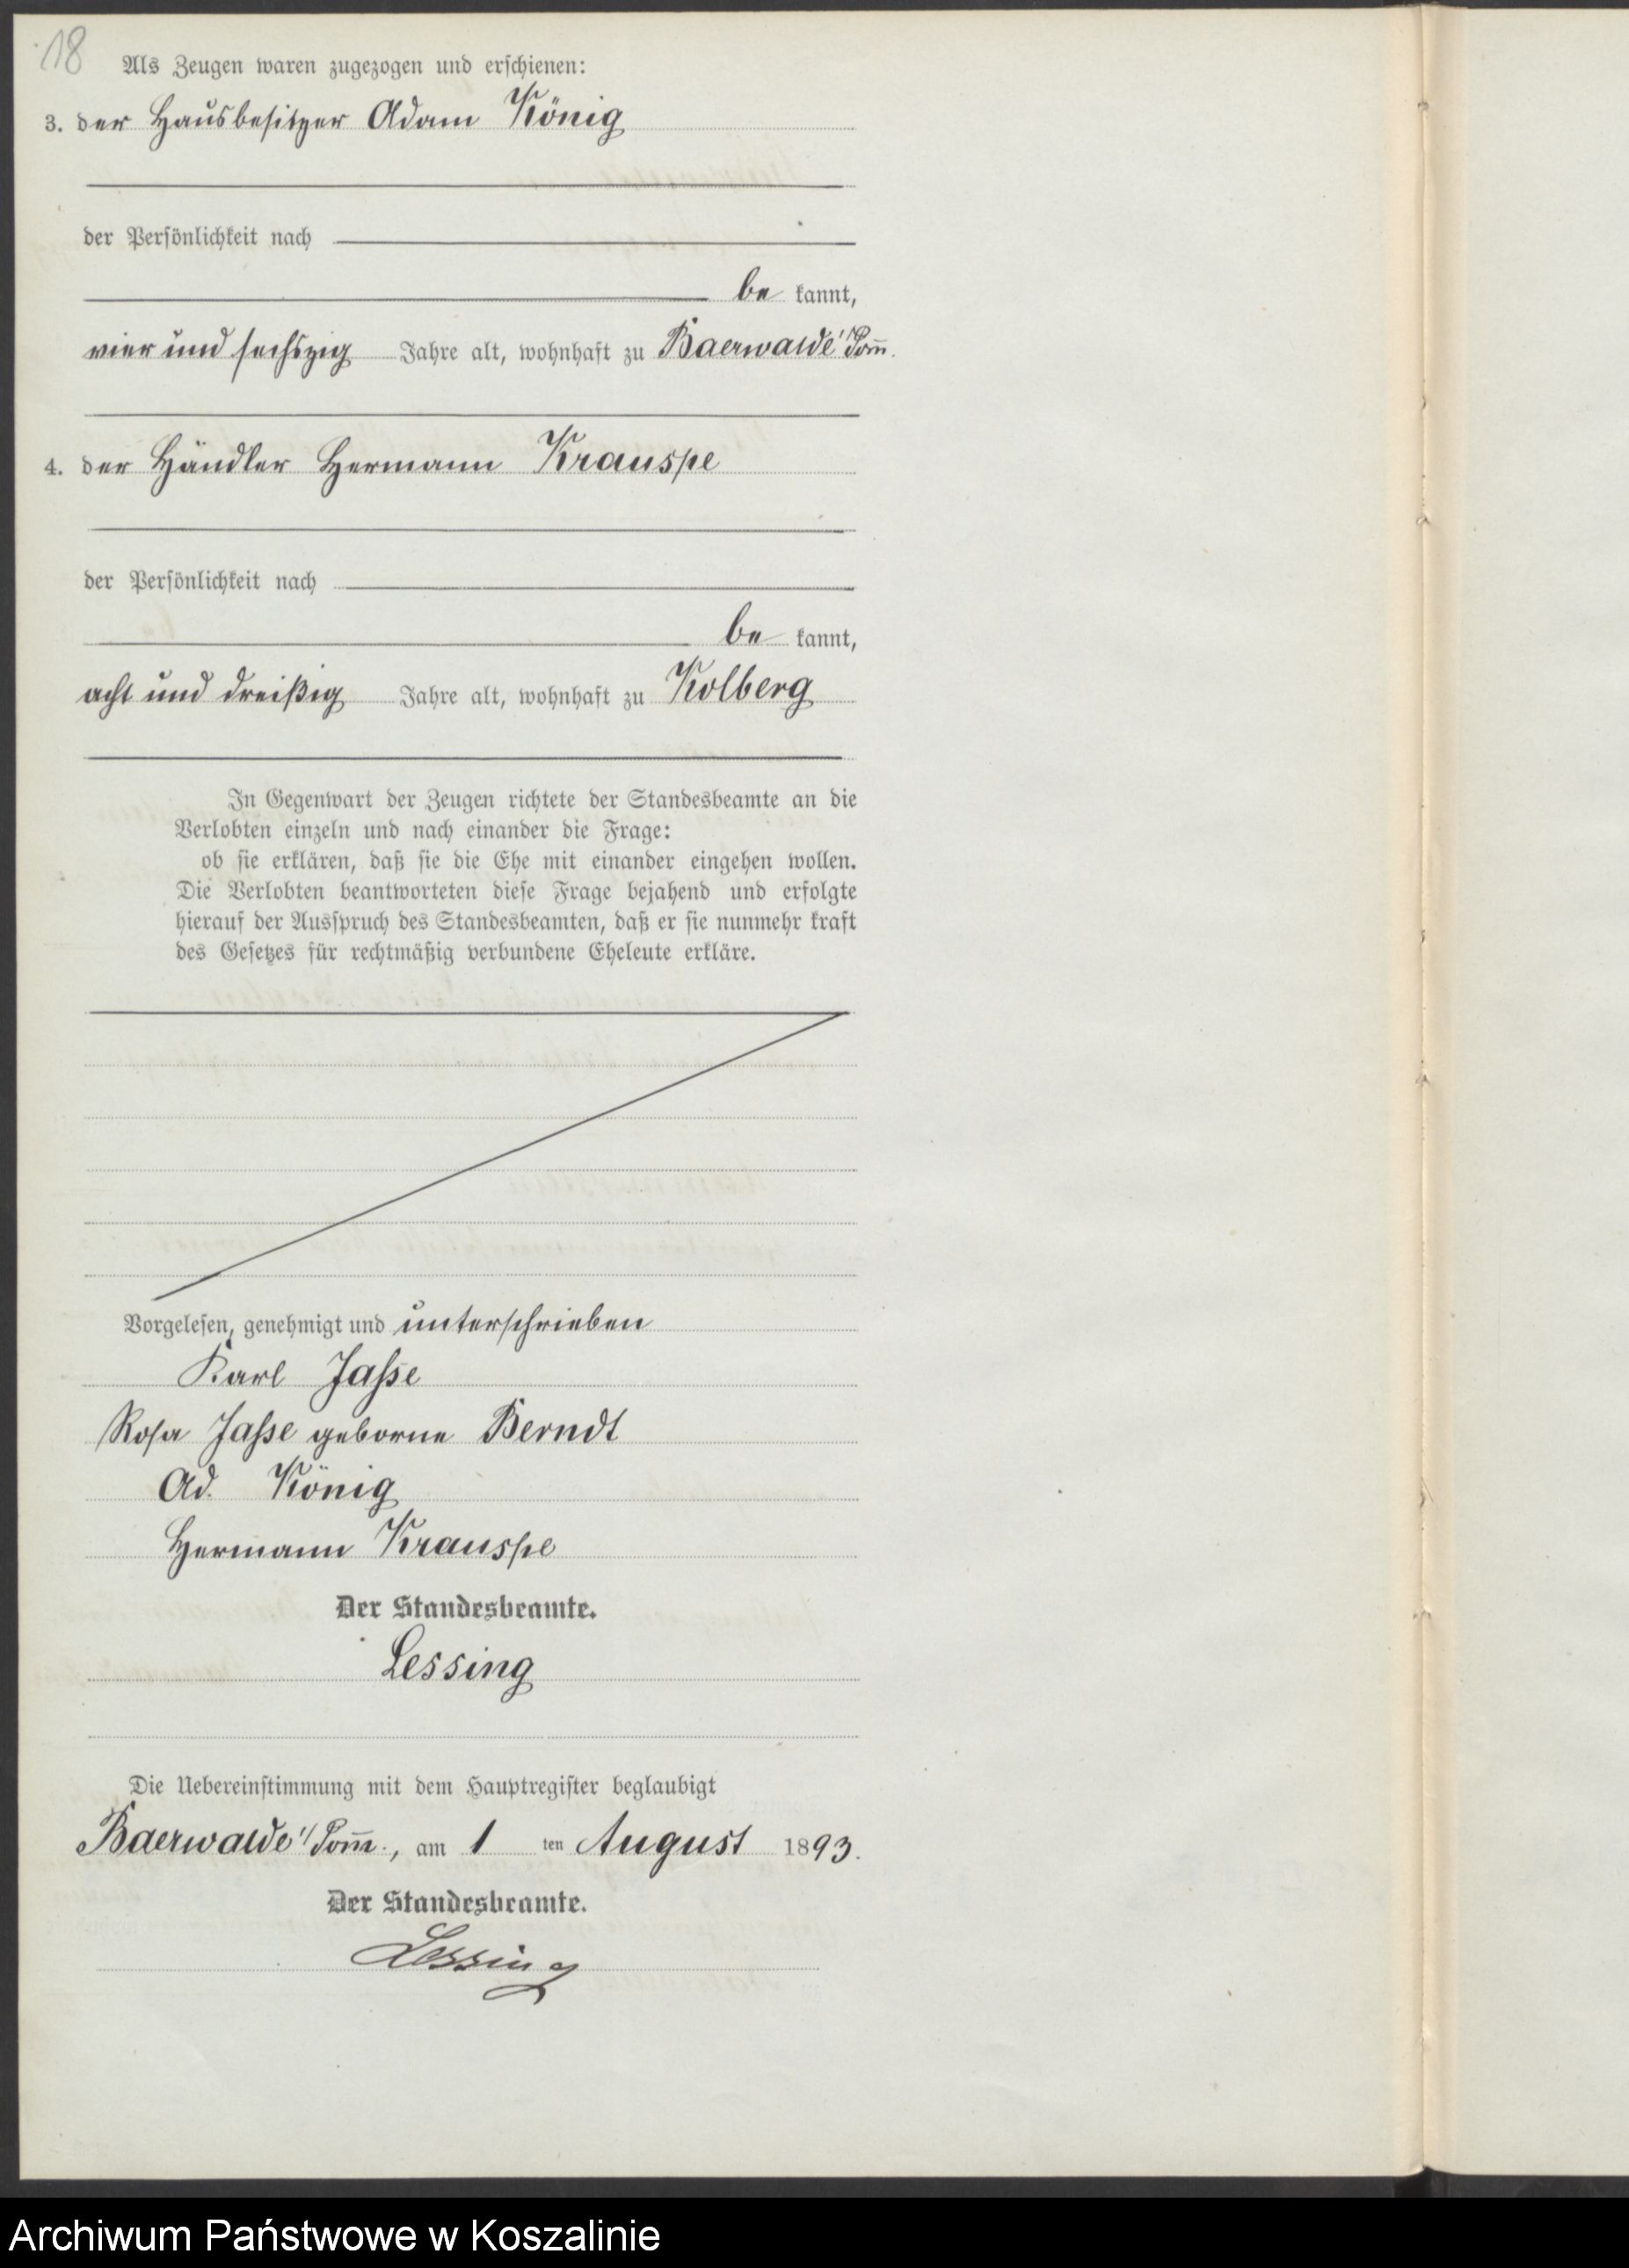 18
Als Zeugen waren zugezogen und erschienen:
3. der Hausbesitzer Adam König
der Persönlichkeit nach
be kannt,
vier und sechszig Jahre alt, wohnhaft zu Baerwalde i/Pom̅.
4. der Händler Hermann Krauspe
der Persönlichkeit nach
be kannt,
acht und dreißig Jahre alt, wohnhaft zu Kolberg
In Gegenwart der Zeugen richtete der Standesbeamte an die
Verlobten einzeln und nach einander die Frage:
ob sie erklären, daß sie die Ehe mit einander eingehen wollen.
Die Verlobten beantworteten diese Frage bejahend und erfolgte
hierauf der Ausspruch des Standesbeamten, daß er sie nunmehr kraft
des Gesetzes für rechtmäßig verbundene Eheleute erkläre.
Vorgelesen, genehmigt und unterschrieben
Karl Jasse
Rosa Jasse geborne Berndt
Ad. König
Hermann Krauspe
Der Standesbeamte.
Lessing
Die Uebereinstimmung mit dem Hauptregister beglaubigt
Baerwalde i/Pom̅., am 1 ten August 1893.
Der Standesbeamte.
Lessing
Archiwum Państwowe w Koszalinie